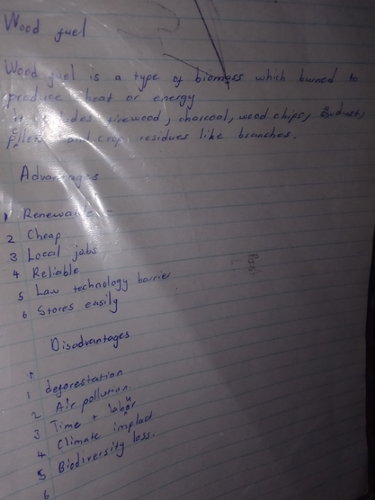 Wood fuel
Wood fuel is a type of biomass which burned to
produce heat or energy
includes firewood, charcoal, wood chips,
Pellets and crop residues like branches.
Advantages
1 Renewable
2 Cheap
3 Local jobs
4 Reliable
5 Law technology barrier
6 Stores easily
Disadvantages
1 deforestation
2 Air pollution
3 Time + labour
4 Climate impact
5 Biodiversity loss.
6